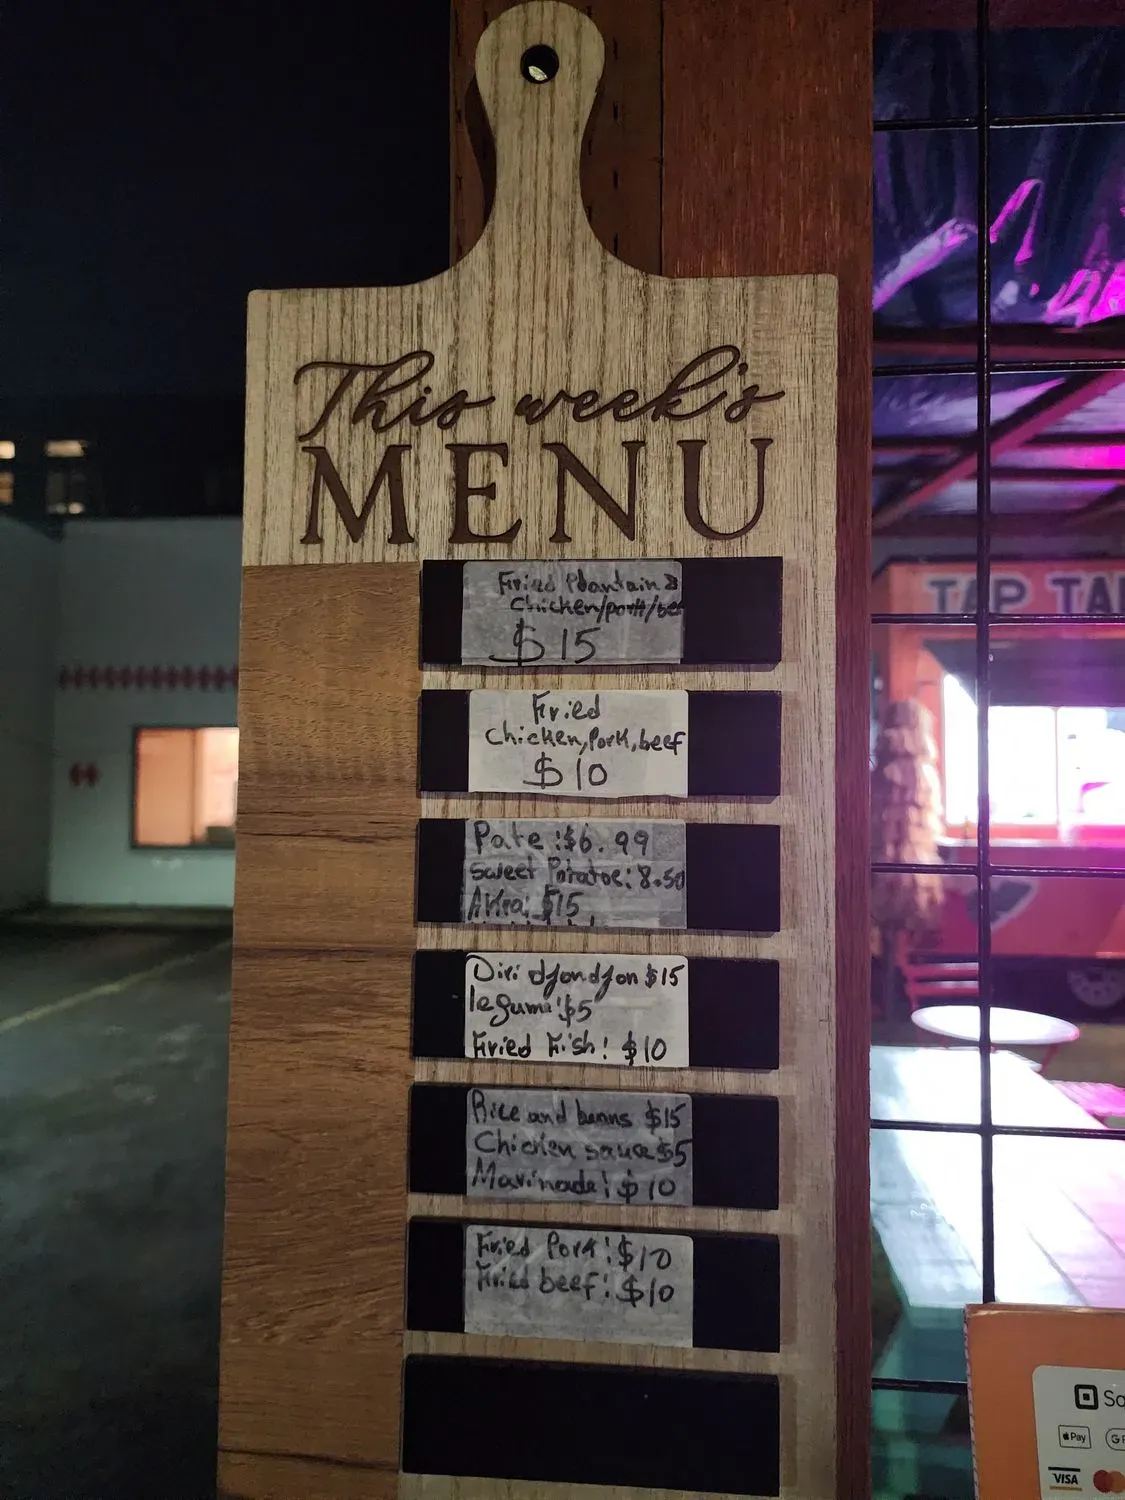 This week's
MENU
Fried Plantain &
Chicken/pork/bee
$15
Fried
Chicken, Pork, beef
$10
Pate: $6.99
Sweet Potatoe: 8.50
Akra: $15
Diri djondjon $15
legume: $5
Fried Fish: $10
Rice and beans $15
Chicken sauce $5
Marinade: $10
Fried Pork: $10
Fried beef: $10
TAP TA
Pay
VISA